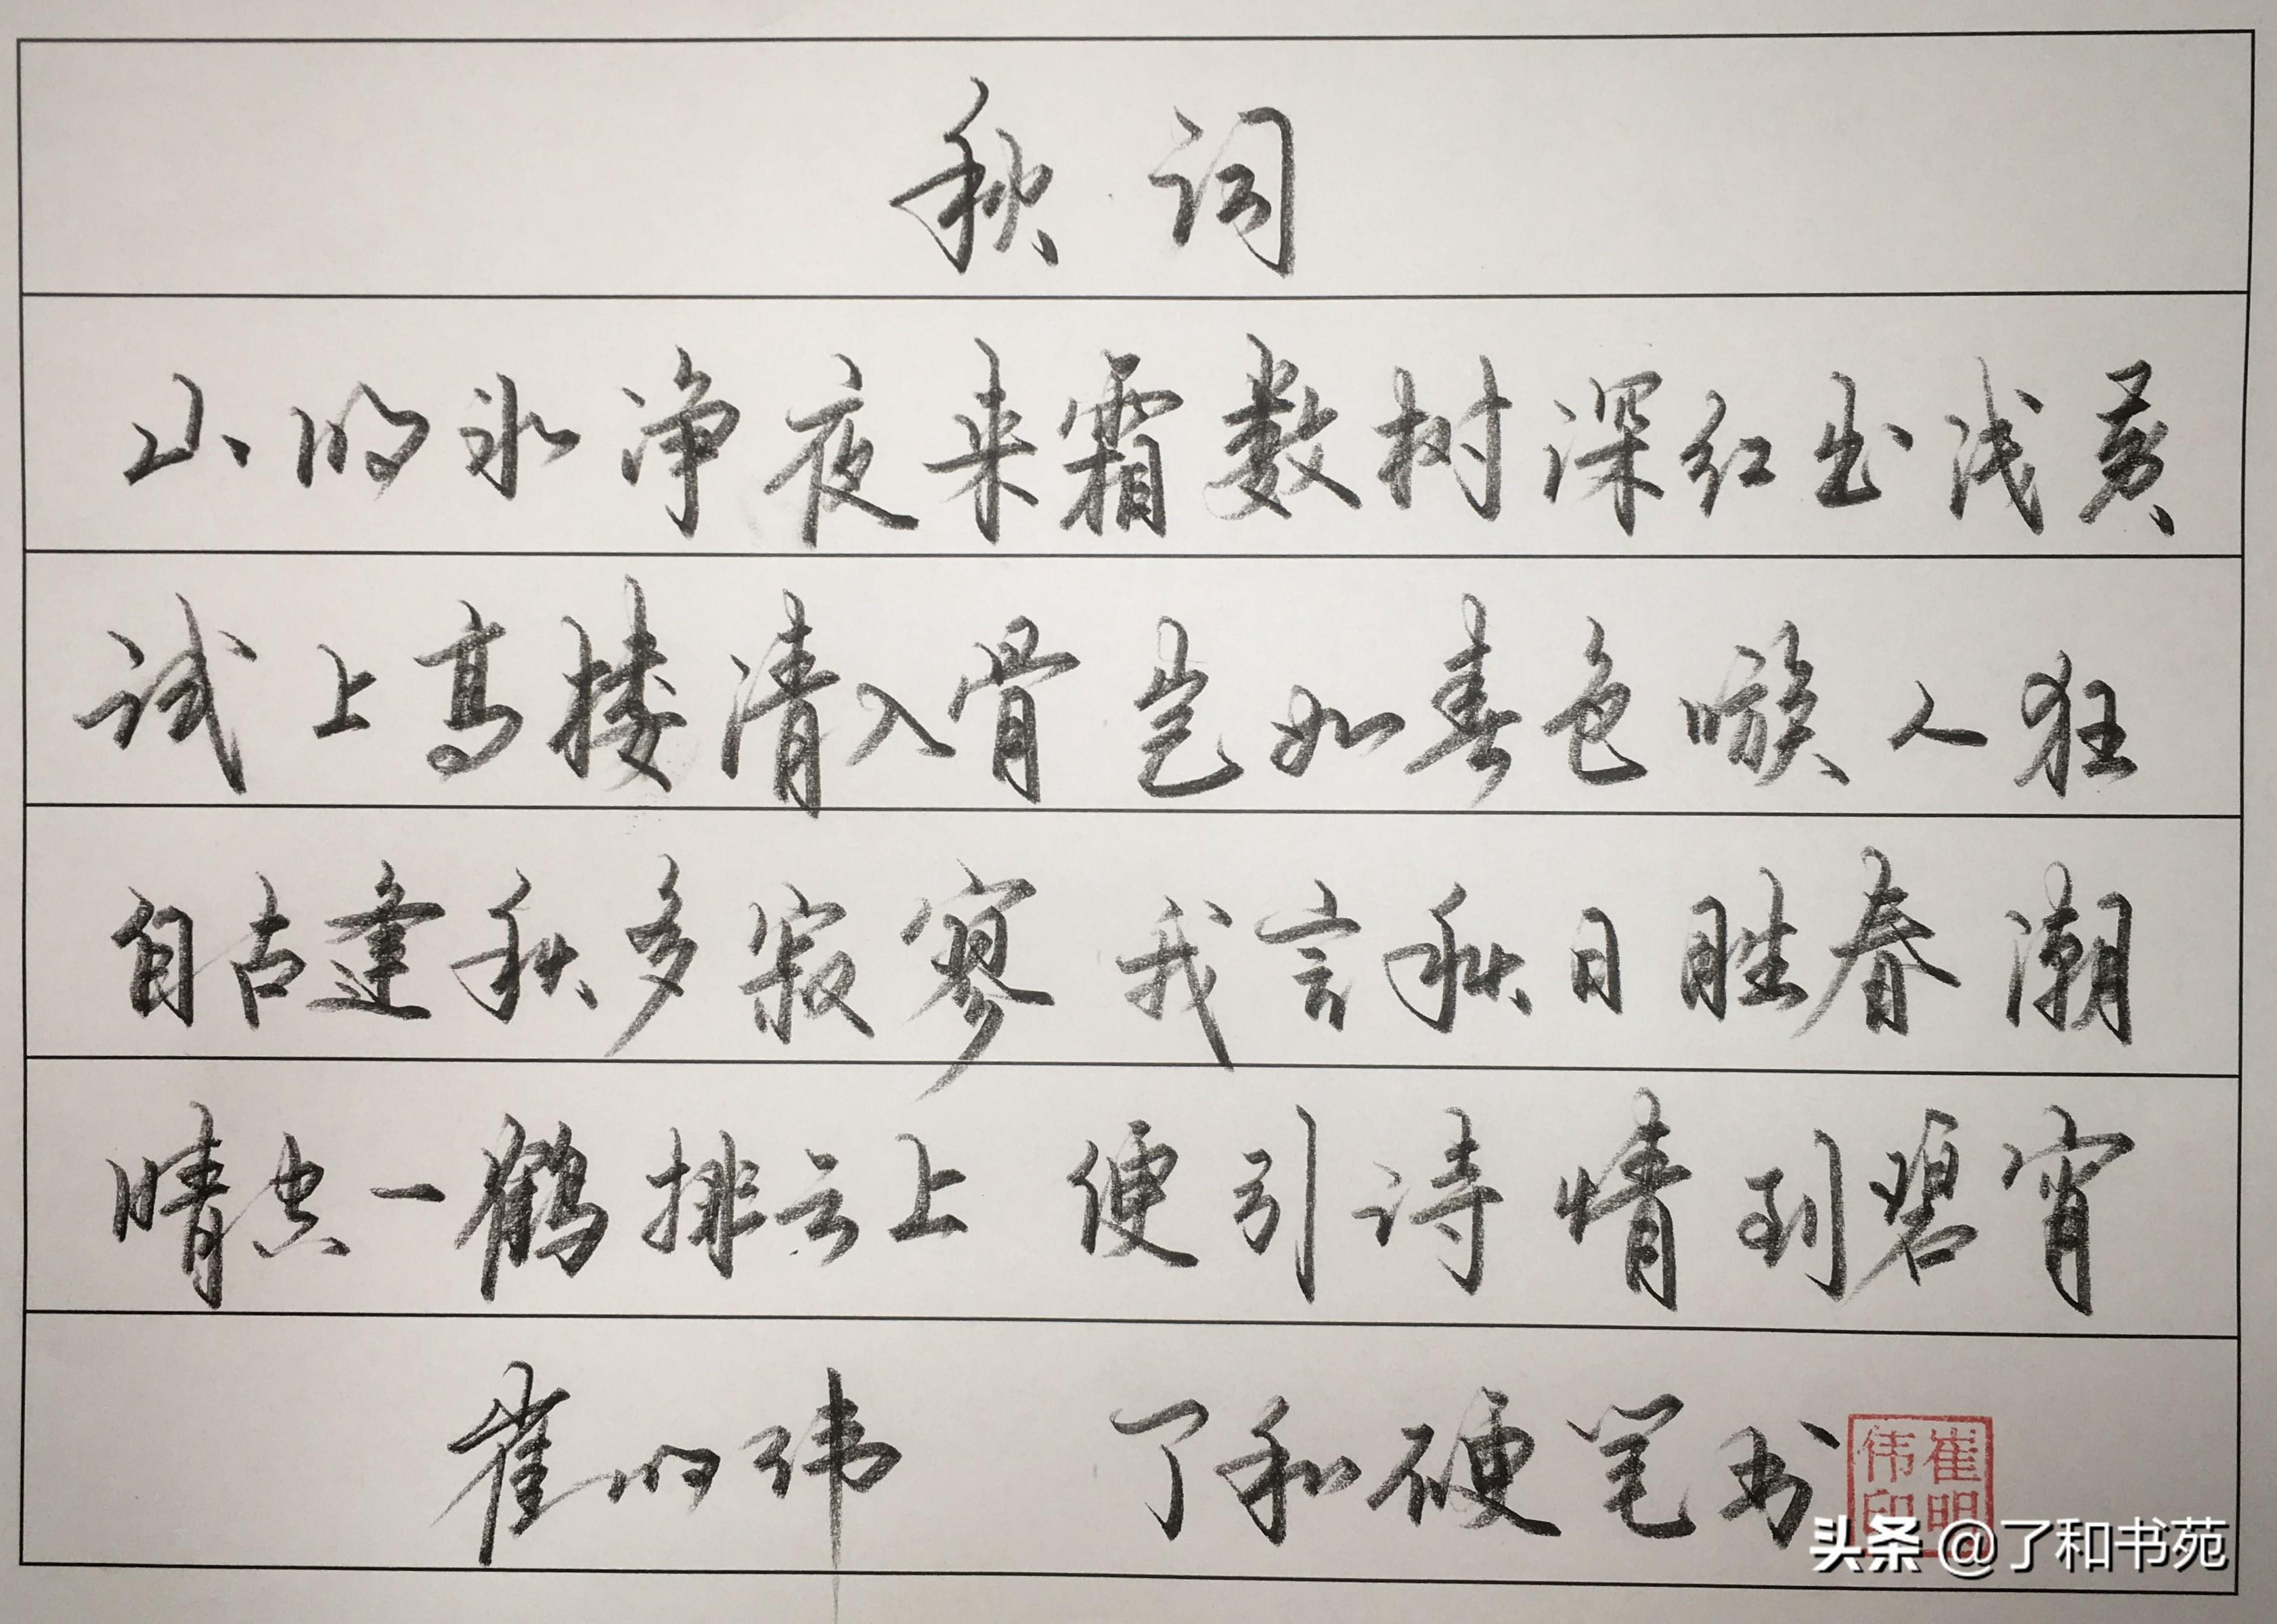 秋词
山明水净夜来霜数树深红出浅黄
试上高楼清入骨岂如春色嗾人狂
自古逢秋多寂寥 我言秋日胜春潮
晴空一鹤排云上 便引诗情到碧宵
崔明玮 了和硬笔书
崔明伟印
头条 @了和书苑